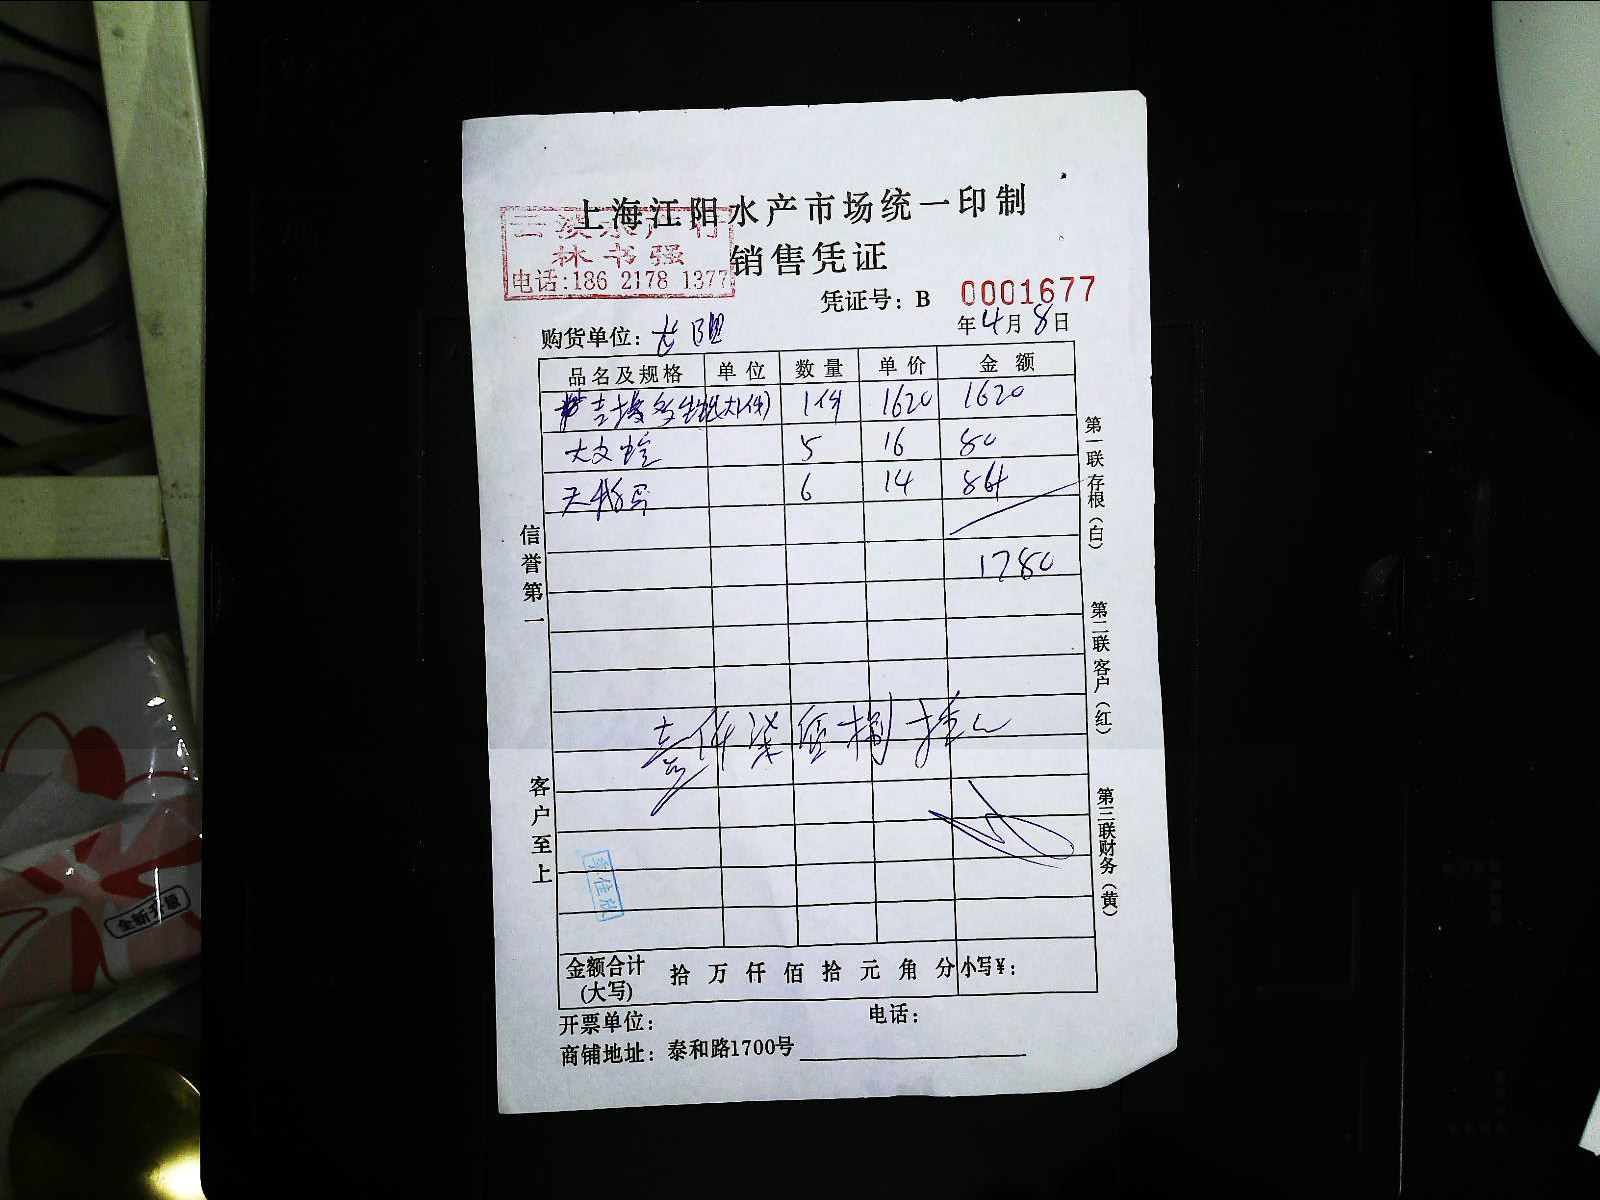 上海江阳水产市场统一印制
销售凭证
林书强
电话:186 2178 1377
凭证号: B 0001677
年4月8日
购货单位:
品名及规格 单位 数量 单价 金额
1件 1620 1620
5 16 80
6 14 84
1780
壹仟柒佰捌拾元
信誉第一
客户至上
第一联存根(白)
第二联客户(红)
第三联财务(黄)
金额合计(大写) 拾 万 仟 佰 拾 元 角 分 小写¥:
开票单位: 电话:
商铺地址: 泰和路1700号
全新升级